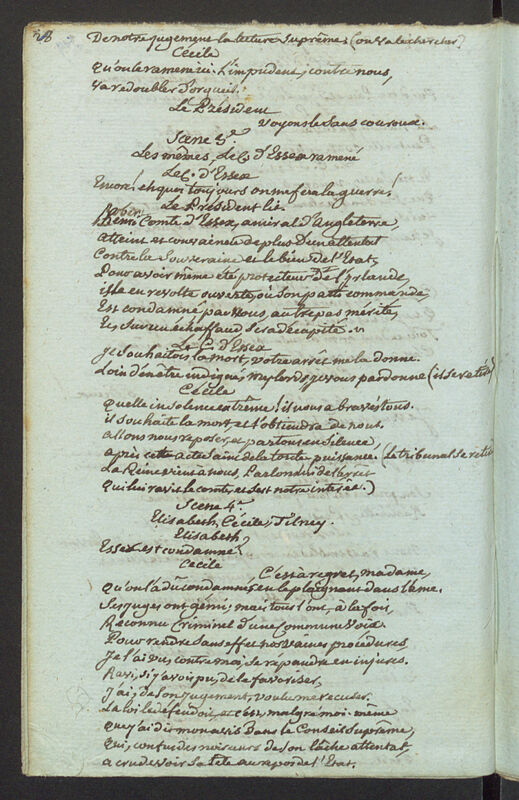 28 De notre jugement la lecture Suprême. (on va le chercher)
Cécile
Qu'on le ramene ici. L'impudent, contre nous,
va redoubler d'orgueil.
Le Président
Voyons le sans couroux.
Scene 3e
Les mêmes, Le C. d'Essex ramené
Le C. d'Essex
Encore! eh quoi toujours on me fera la guerre!
Le Président lit.
Robert
Comte d'Essex, amiral d'Angleterre,
Atteint et convaincu de plus d'un attentat
Contre la Souveraine et le bien de l'Etat,
Pour avoir même été protecteur de l'Irlande,
isle en revolte ouverte, où Son parti commande,
Est condamné par Nous, autre pas mérité,
Et sur un échaffaud Sera décapité.
Le C. d'Essex
Je Souhaitois la mort, votre arrêt me la donne.
Loin d'en être indigné, Mylords, je vous pardonne (il se retire)
Cécile
quelle insolence extrême! il nous a bravés tous.
il Souhaite la mort et l'obtiendra de nous.
allons nous reposer, et partons en Silence
après cette acte Saint de la toute puissance. (Le tribunal Se retire
La Reine vient à nous, Parlons lui de l'arrêt
Qui lui ravit le comte, et c'est notre intérêt.)
Scene 4e
Elisabeth, Cécile, Tilney.
Elisabeth
Essex est condamné?
Cécile
C'est à regret, madame,
Qu'on l'a dû condamner, en le plaignant dans l'ame.
Ses juges ont gémi; mais tous l'ont, à la fois,
Reconnu Criminel d'une Commune Voix.
Pour rendre Sans effet nos vaines procédures,
Je l'ai vu, contre moi, Se repandre en injures.
Ravi, si j'avois pu, de le favoriser,
J'ai, de Son Jugement, voulu me recuser.
La loi le défendoit, et c'est, malgré moi-même
Que j'ai dit mon avis dans le Conseil Suprême,
Qui, confus des noirceurs de Son lâche attentat,
a cru devoir Sa tête au repos de l'Etat.